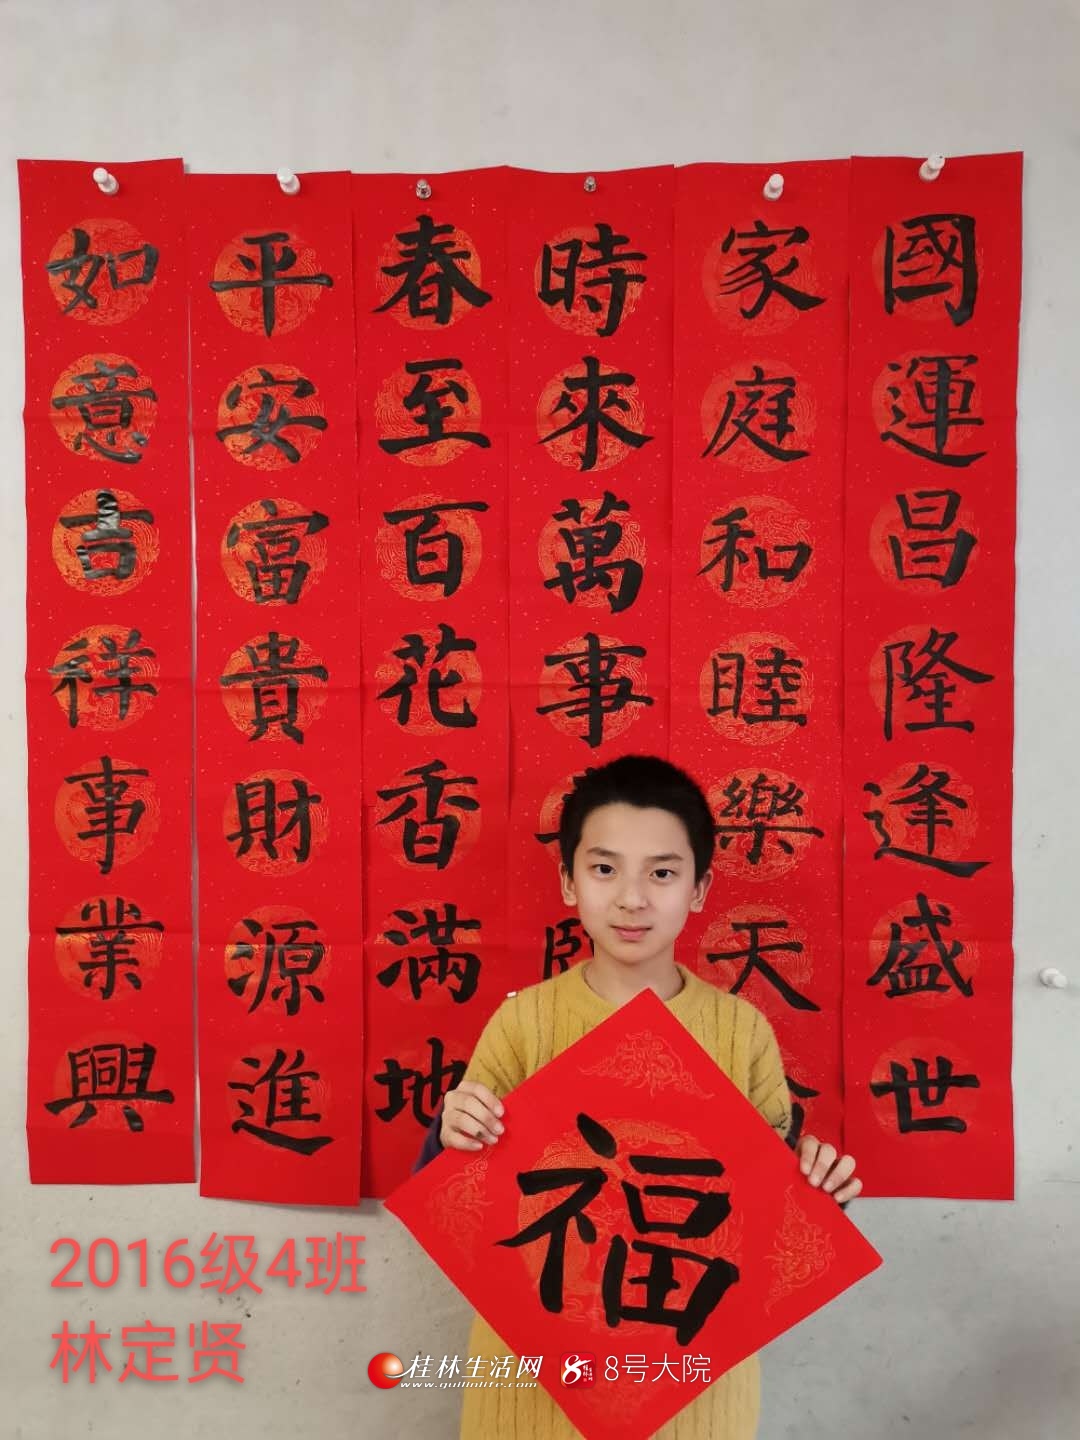 國運昌隆逢盛世
家庭和睦樂天
時來萬事
春至百花香滿地
平安富貴財源進
如意吉祥事業興
福
2016级4班
林定贤
桂林生活网
www.guilinlife.com
8号大院